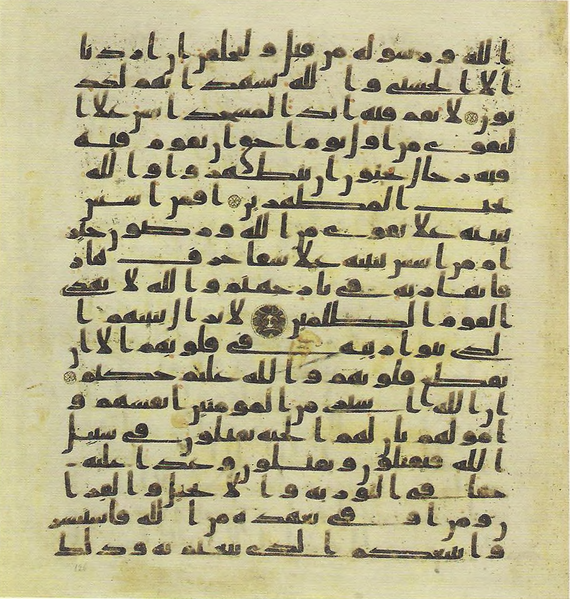 الله ورسوله من قبل وليحلفن ان اردنا
الا الحسنى والله يشهد انهم لكذ
بون لا تقم فيه ابدا لمسجد اسس علا ا
لتقوى من اول يوم احق ان تقوم فيه
فيه رجال يحبون ان يتطهروا والله
يحب المطهرين افمن اسس
بنينه علا تقوى من الله ورضون خير
ام من اسس بنينه علا شفا جرف هار
فانهار به في نار جهنم والله لا يهدي
القوم الظلمين لا يزال بنينهم ا
لذي بنوا ريبة في قلوبهم الا ان
تقطع قلوبهم والله عليم حكيم
ان الله اشترى من المومنين انفسهم و
امولهم بان لهم الجنة يقتلون في سبيل
الله فيقتلون ويقتلون وعدا عليه
حقا في التورية والانجيل والقرا
ن ومن اوفى بعهده من الله فاستبشر
وا ببيعكم الذي بيعتم به وذلك